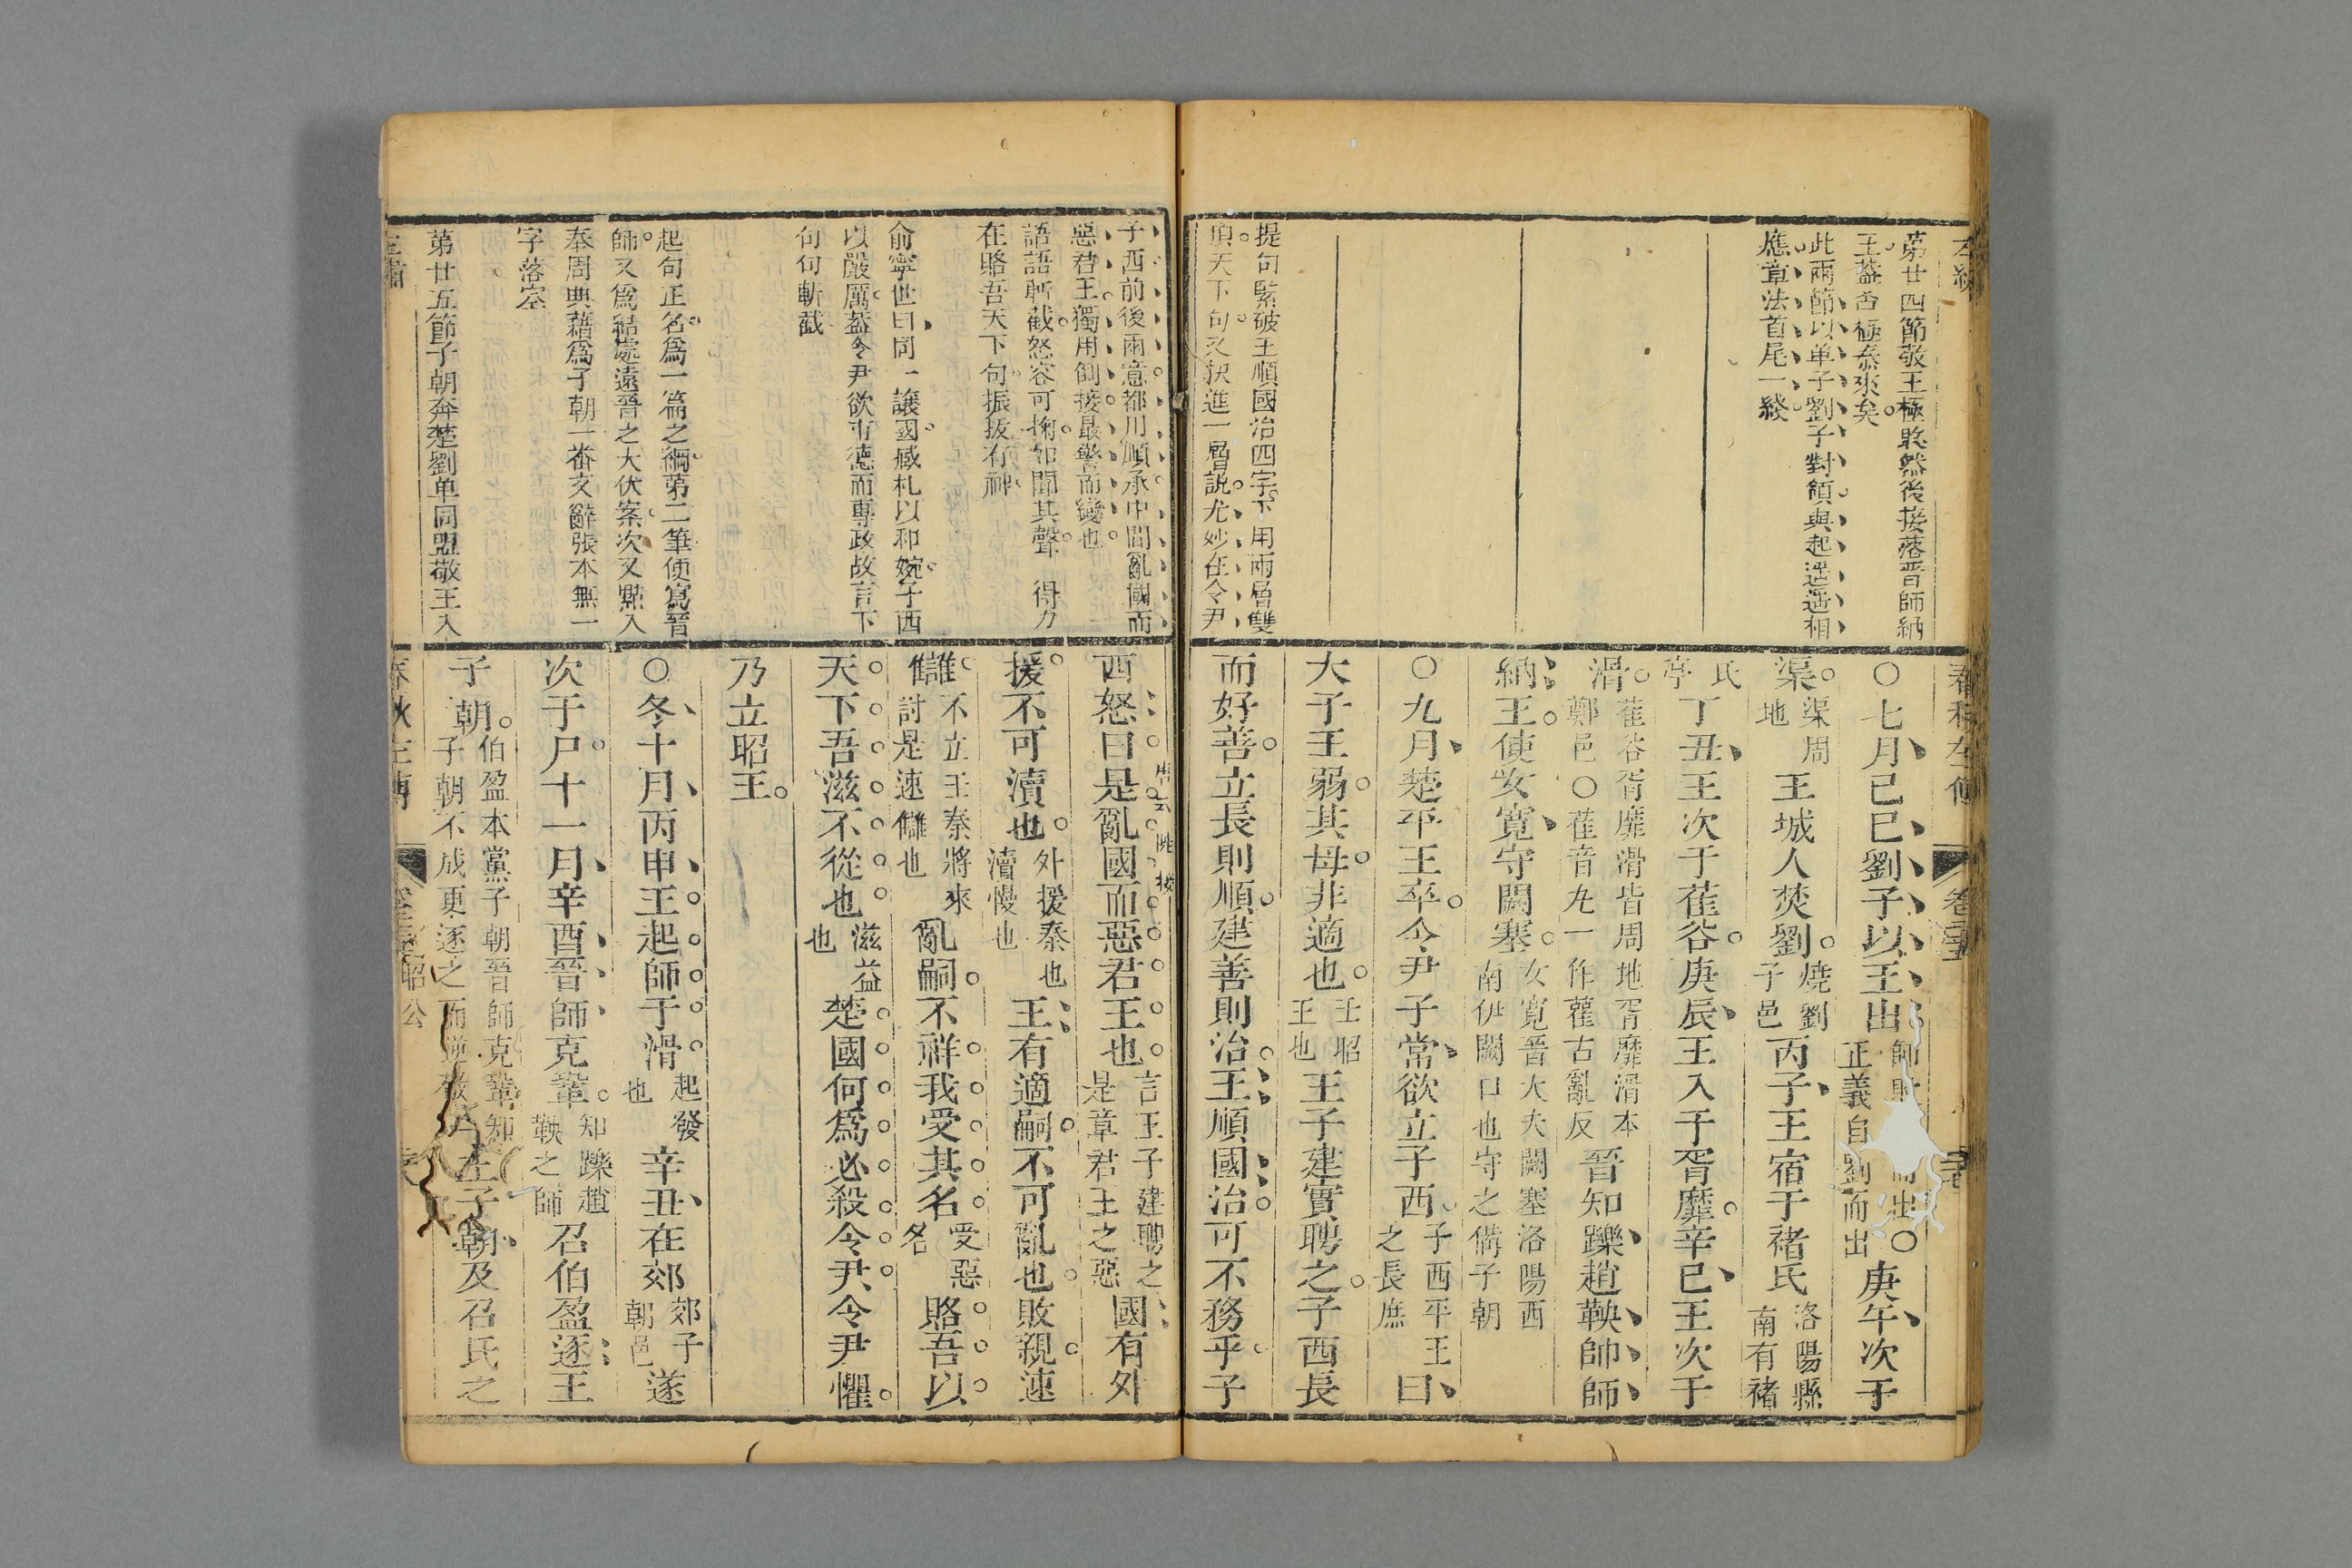 第廿四節敬王極敗然後接落晉師納
王葢否極泰來矣
此兩節以单子劉子對領與起遥遥相
應章法首尾一綫
提句緊破王順國治四字下用兩層雙
頂天下句又抉進一層說尤妙在令尹
○七月己巳劉子以王出
正義自劉而出○庚午次于
渠渠周地王城人焚劉燒劉子邑丙子王宿于褚氏洛陽縣南有褚
氏亭丁丑王次于萑谷庚辰王入于胥靡辛巳王次于
滑萑谷胥靡滑皆周地胥靡滑本鄭邑○萑音丸一作雚古亂反晉知躒趙鞅帥師
納王使女寬守闕塞女寬晉大夫闕塞洛陽西南伊闕口也守之備子朝
○九月楚平王卒令尹子常欲立子西子西平王之長庶曰
大子壬弱其母非適也壬昭王也王子建實聘之子西長
而好善立長則順建善則治王順國治可不務乎子
子西前後兩意都用順承中間亂國而
惡君王獨用倒接最警而變也
語語斬截怒容可掬如聞其聲　得力
在賂吾天下句振拔有神
俞寧世曰同一讓國臧札以和婉子西
以嚴厲葢令尹欲市德而專政故言下
句句斬截
起句正名爲一篇之綱第二筆便寫晉
師又爲結處遠晉之大伏案次又㸃入
奉周典藉爲子朝一番文辭張本無一
字落空
第廿五節子朝奔楚劉单同盟敬王入
西怒曰是亂國而惡君王也言王子建聘之是章君王之惡國有外
援不可瀆也外援秦也瀆慢也王有適嗣不可亂也敗親速
讎不立王秦將來討是速讎也亂嗣不祥我受其名受惡名賂吾以
天下吾滋不從也滋益也楚國何爲必殺令尹令尹懼
乃立昭王
○冬十月丙申王起師于滑起發也辛丑在郊郊子朝邑遂
次于尸十一月辛酉晉師克鞏知躒趙鞅之師召伯盈逐王
子朝伯盈本黨子朝晉師克鞏知子朝不成更逐之而逆敬王王子朝及召氏之
春秋左傳
昭公